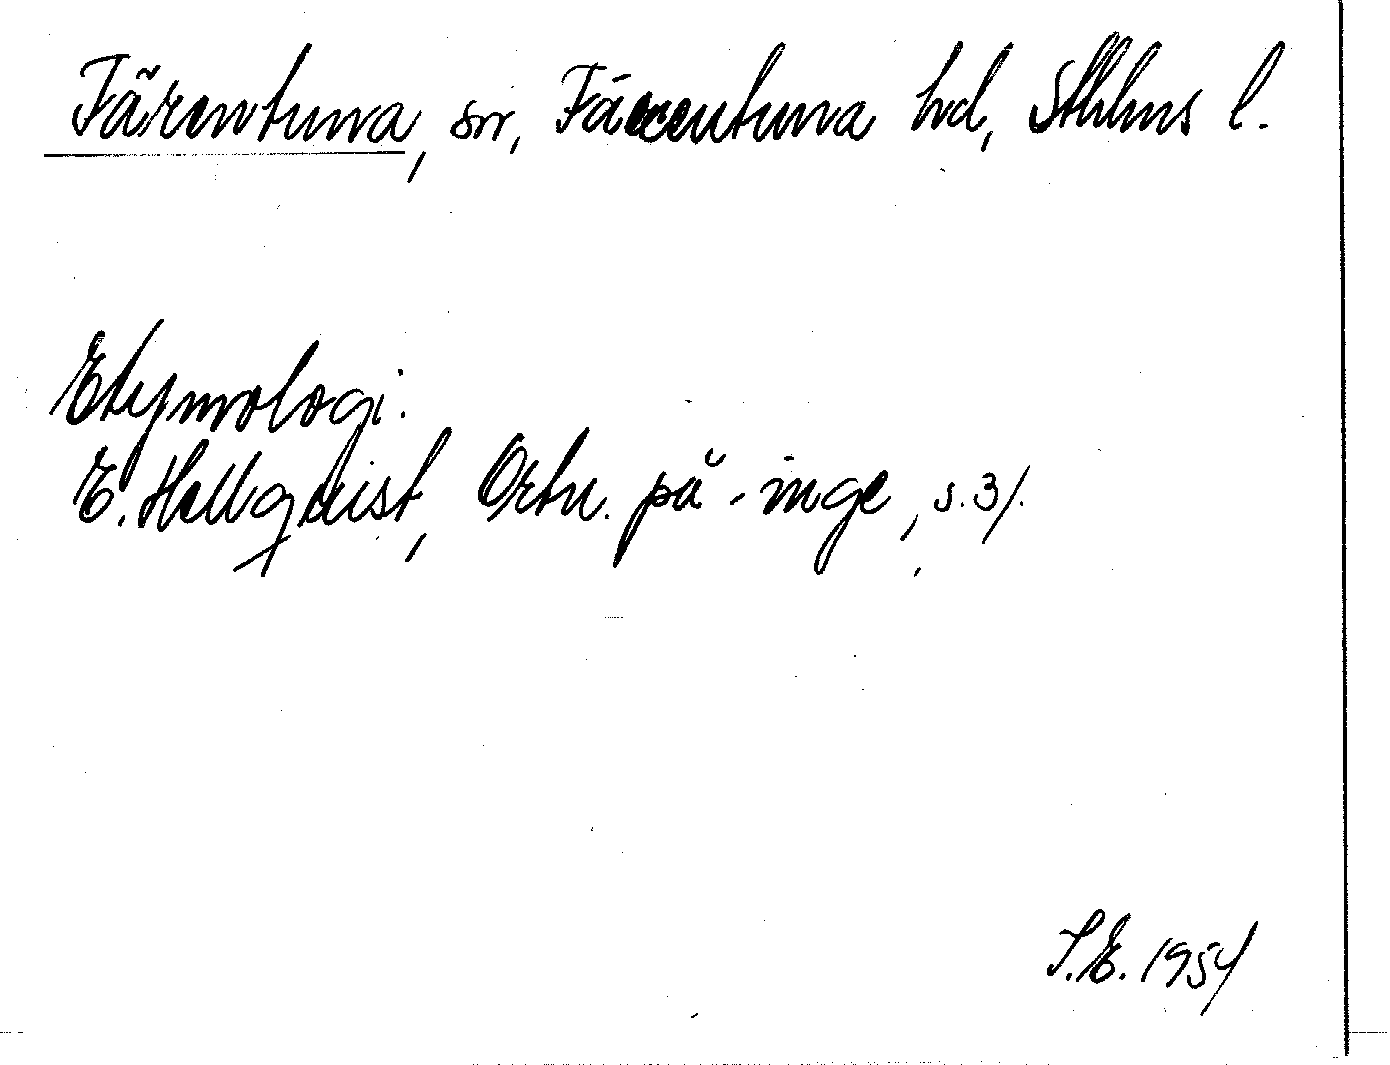 Färentuna, sn, Färentuna hd, Sthlms l.
Etymologi.
E. Hellquist, Ortn. på -inge, s. 31.
S.E. 1954